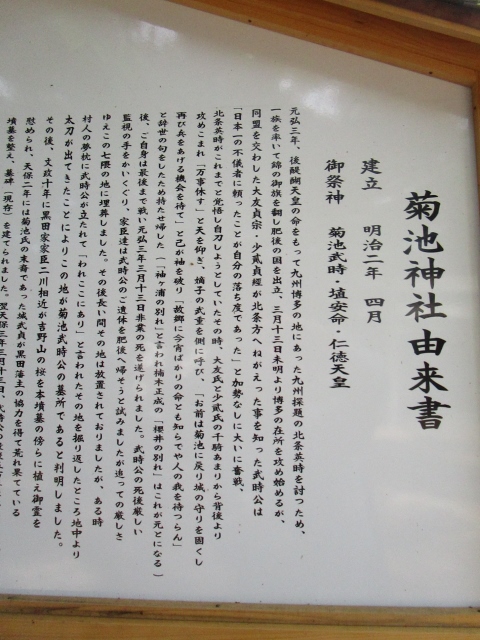 菊池神社由来書
建立　明治二年　四月
御祭神　菊池武時・埴安命・仁徳天皇
元弘三年、後醍醐天皇の命をもって九州博多の地にあった九州探題の北条英時を討つため、
一族を率いて錦の御旗を翻し肥後の国を出立、三月十三日未明より博多の在所を攻め始めるが、
同盟を交わした大友貞宗・少貮貞経が北条方へねがえった事を知った武時公は
「日本一の不儀者に頼ったことが自分の落ち度であった」と加勢なしに大いに奮戦、
北条英時がこれまでと覚悟し自刃しようとしていたその時、大友氏と少貮氏の千騎あまりから背後より
攻めこまれ「万事休す」と天を仰ぎ、嫡子の武重を側に呼び、「お前は菊池に戻り城の守りを固くし
再び兵をあげる機会を待て」と己が袖を破り「故郷に今宵ばかりの命とも知らでや人の我を待つらん」
と辞世の句をしたため持たせ帰した（「袖ヶ浦の別れ」と言われ楠木正成の「桜井の別れ」はこれが元とになる）
後、ご自身は最後まで戦い元弘三年三月十三日非業の死を遂げられました。武時公の死後厳しい
監視の手をかいくぐり、家臣達は武時公のご遺体を肥後へ帰そうと試みましたが追っての厳しさ
ゆえこの七隈の地に埋葬しました。その後長い間その地は放置されておりましたが、ある時
村人の夢枕に武時公が立たれて「われここにあり」と言われたその地を掘り返したところ地中より
太刀が出てきたことによりこの地が菊池武時公の墓所であると判明しました。
その後、文政十年に黒田家家臣二川相近が吉野山の桜を本墳墓の傍らに植え御霊を
慰められ、天保二年には菊池氏の末裔であった城武貞が黒田藩主の協力を得て荒れ果てている
墳墓を整え、墓碑（現存）を建てられました。翌天保三年三月十三日、武時公の